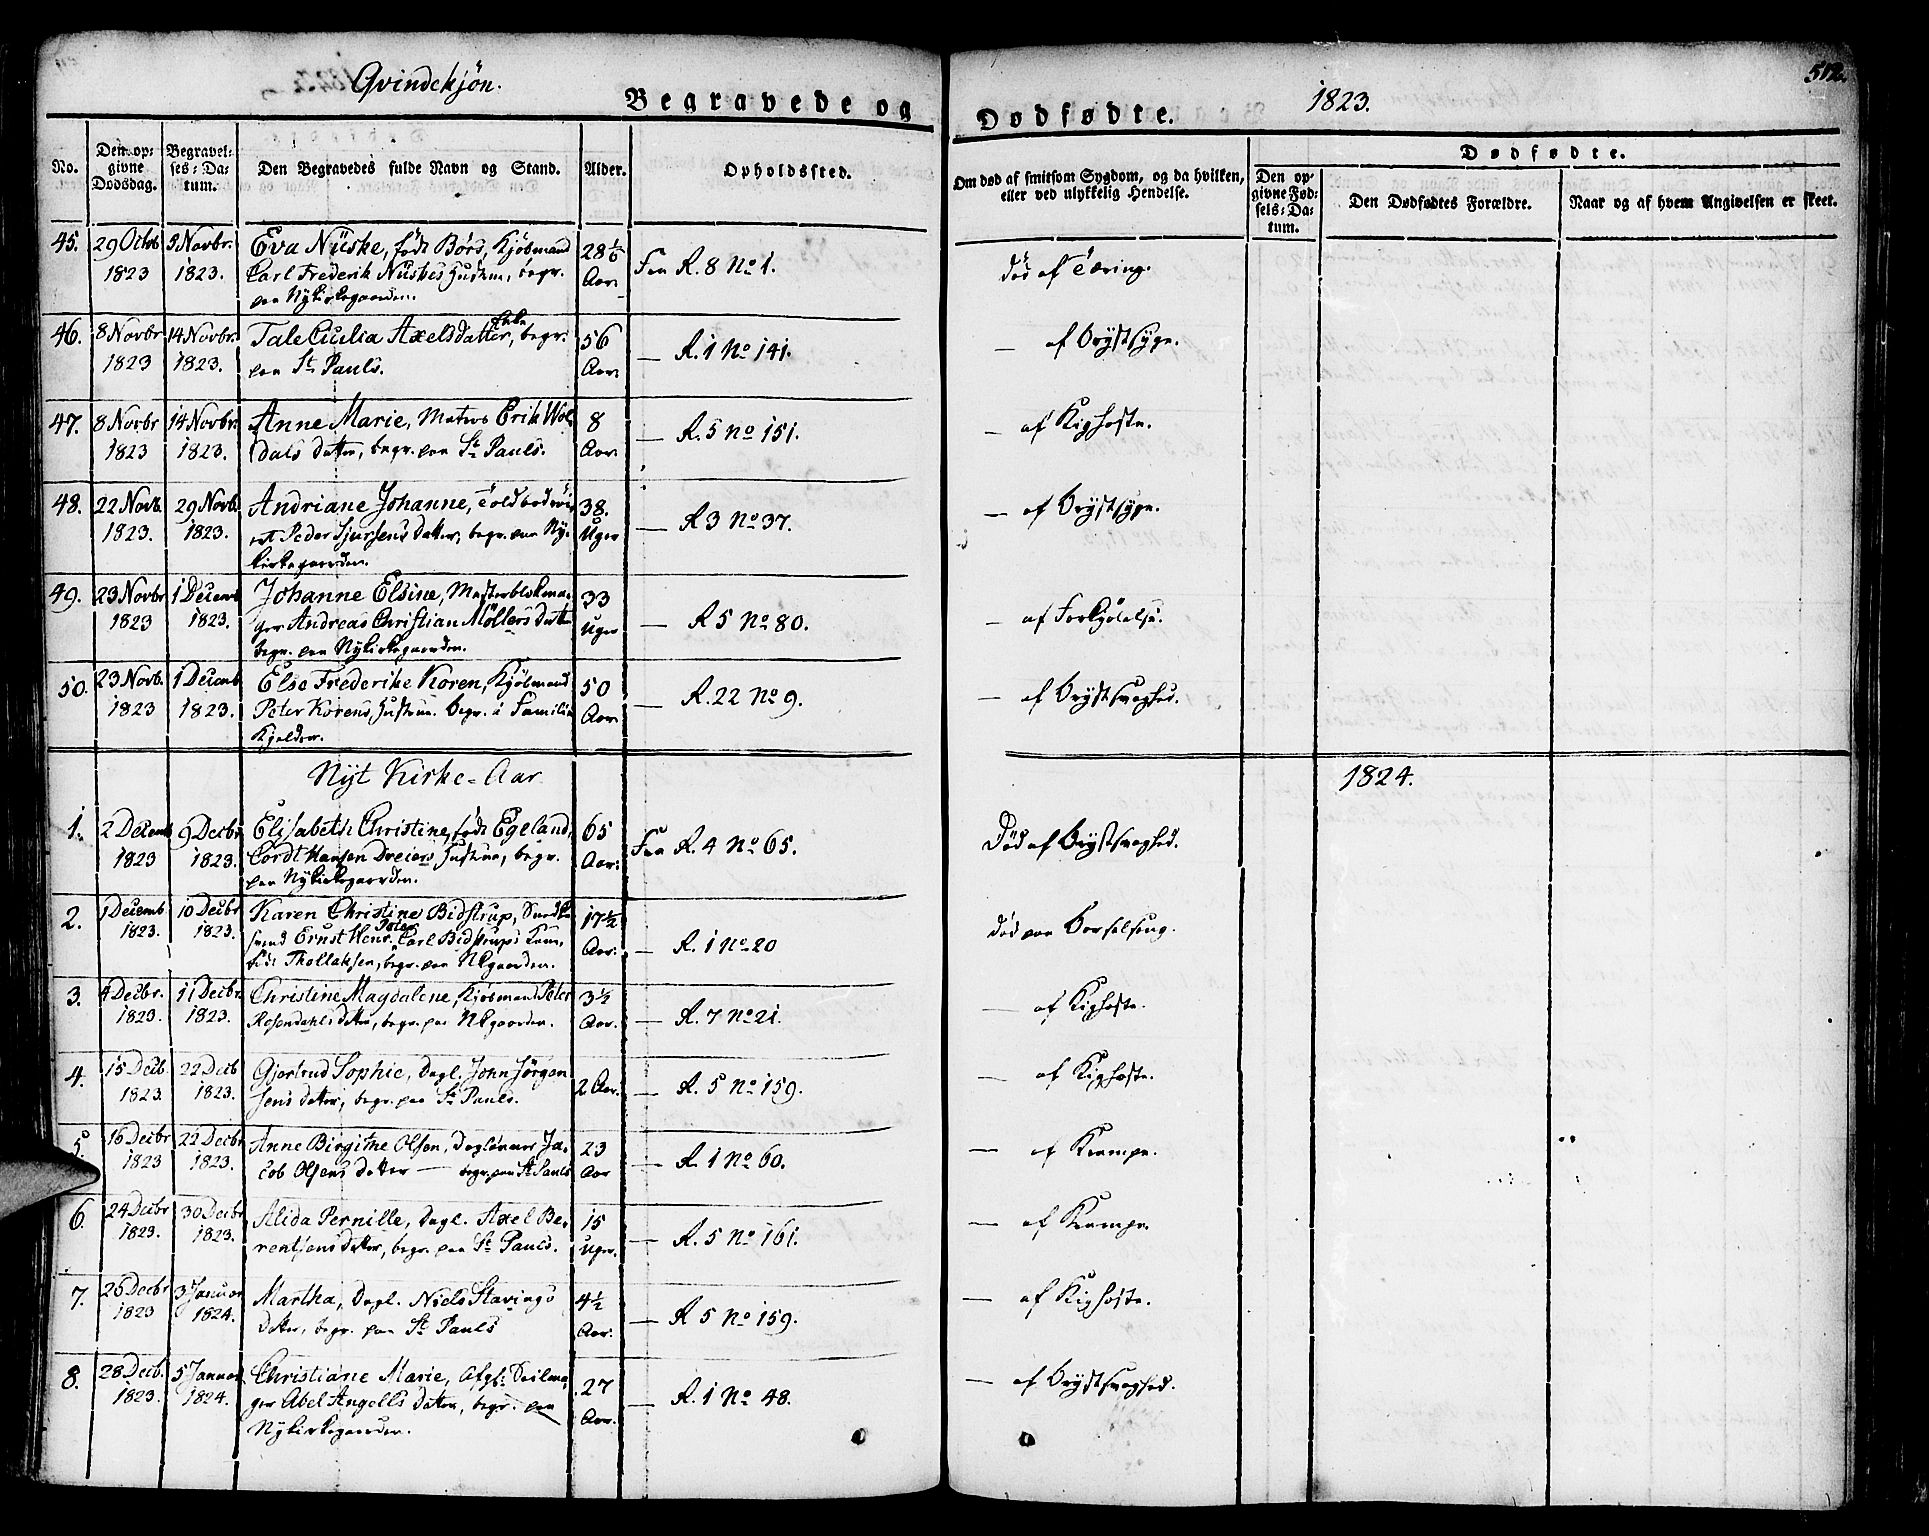 Qvindekjön.
Begravede og Dødfødte.
1823.
512.
No.
Den opgivne Dødsdag.
Begravelses-Datum.
Den Begravedes fulde Navn og Stand.
Alder.
Opholdssted.
Om død af smitsom Sygdom, og da hvilken, eller ved ulykkelig Hendelse.
Dødfødte.
Den opgivne Fødsels-Datum.
Den Dødfødtes Forældre.
Naar og af hvem Angivelsen er skeet.
45. 29 Octob 3 Novbr. Eva Nüske, født Börs, Kjöbmand 28½
1823 1823. Carl Frederik Nüskes Hustru, begr. Aar Fra R. 8 No 1. død af Tæring.
paa Nykirkegaarden.
46. 8 Novbr 14 Novbr. Tale Axelsdatter, Enke, begr. 56
1823 1823. paa St Pauls. Aar — R. 1 No 141. — af Brystsyge.
47. 8 Novbr 14 Novbr. Anne Marie, Matros Erik Wol 8
1823 1823. dals datter, begr. paa St Pauls. Aar — R. 5 No 151. — af Kighoste.
48. 22 Novb. 29 Novb. Andriane Johanne, 38.
1823. 1823. Peder Sjursens datter, begr. paa Ny- Uger — R 3 No 37. — af Brystsyge.
kirkegaarden.
49. 23 Novbr 1 Decemb Johanne Elsine, Mesterblokma- 33
1823 1823. ger Andreas Christian Möllers datter Uger — R 5 No 80. — af Forkjölelse.
begr. paa Nykirkegaarden.
50. 23 Novb. 1 Decemb Else Frederike Koren, Kjöbmand 50
1823 1823. Peter Korens Hustrue. begr. i Familie Aar — R. 22 No 9. — af Brystsvaghed.
Kjelder.
Nyt Kirke-Aar 1824.
1. 2 Decemb 9 Decbr Elisabeth Christine, født Egeland, 65
1823 1823. Cordt Hansen Dreiers Hustrue, begr. Aar. Fra R. 4 No 65. Død af Brystsvaghed.
paa Nykirkegaarden.
2. 1 Decemb 10 Decbr Karen Christine Bidstrup, 17½
1823. 1823. svend Ernst Henr. Peter Carl Bidstrups Kone, Aar. — R. 1 No 20 død paa Barselseng.
født Thollaksen, begr. paa NKgaarden.
3. 4 Decbr. 11 Decbr. Christine Magdalene, Kjöbmand Peter 3½
1823. 1823. Rosendahls datter, begr. paa NKgaarden. Aar. — R. 7 No 21. — af Kighoste.
4. 15 Decb. 22 Decb Gjertrud Sophie, Dagl. John Jörgen 2 Aar.
1823. 1823. sens datter, begr. paa St Pauls. — R. 5 No 159. — af Kighoste.
5. 16 Decbr 22 Decbr Anne Birgithe Olsen, Daglönner Ja- 23
1823 1823. cob Olsens datter — begr. paa St Pauls Aar — R. 1 No 60. — af Krampe.
6. 24 Decbr 30 Decbr Alida Pernille, Dagl. Axel Be- 15
1823. 1823. rentsens datter, begr. paa St Pauls. Uger. — R. 5 No 161. — af Krampe.
7. 26 Decbr 3 Januar Martha, Dagl. Niels Stavings 4½
1823 1824. datter, begr. paa St Pauls Aar. — R 5 No 159. — af Kighoste.
8. 28 Decb. 5 Januar Christiane Marie, Afgl. Seilma- 27
1823. 1824. ger Abel Angells datter, begr. paa Aar. — R. 1 No 48. — af Brystsvaghed.
Nykirkegaarden.